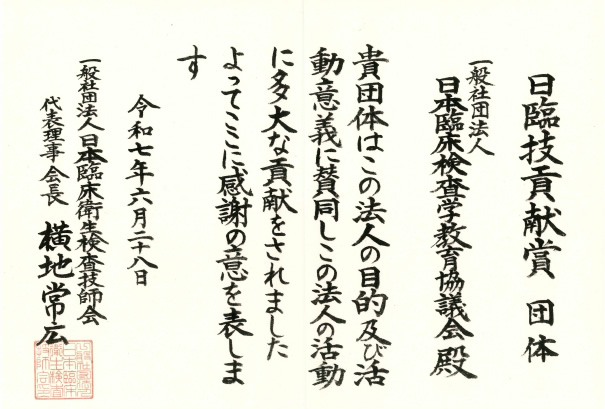 日臨技貢献賞 団体
一般社団法人
日本臨床検査学教育協議会 殿
貴団体はこの法人の目的及び活
動意義に賛同しこの法人の活動
に多大な貢献をされました
よってここに感謝の意を表しま
す
令和七年六月二十八日
一般社団法人日本臨床衛生検査技師会
代表理事会長 横地常広